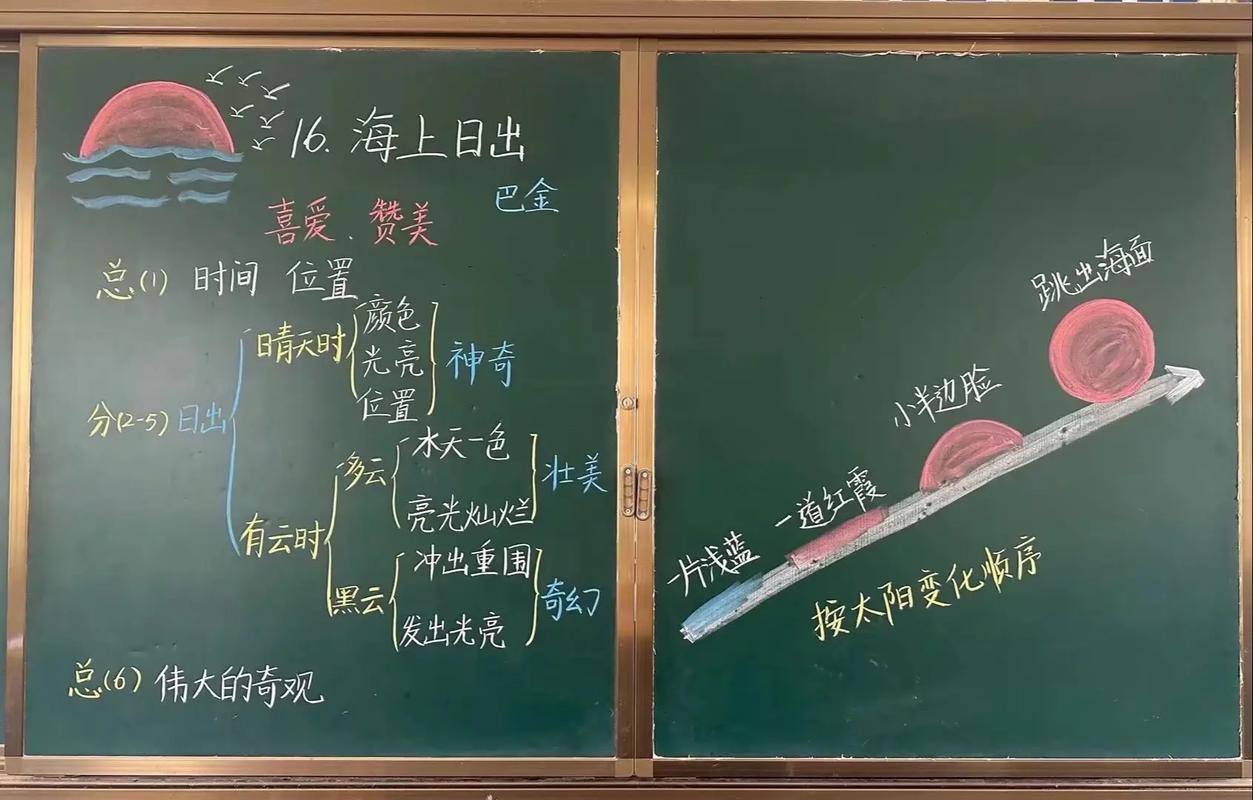 16. 海上日出
巴金
喜爱、赞美
总(1) 时间 位置
分(2-5) 日出
晴天时
颜色
光亮
位置
神奇
有云时
多云
水天一色
亮光灿烂
壮美
黑云
冲出重围
发出光亮
奇幻
总(6) 伟大的奇观
一片浅蓝
一道红霞
小半边脸
跳出海面
按太阳变化顺序